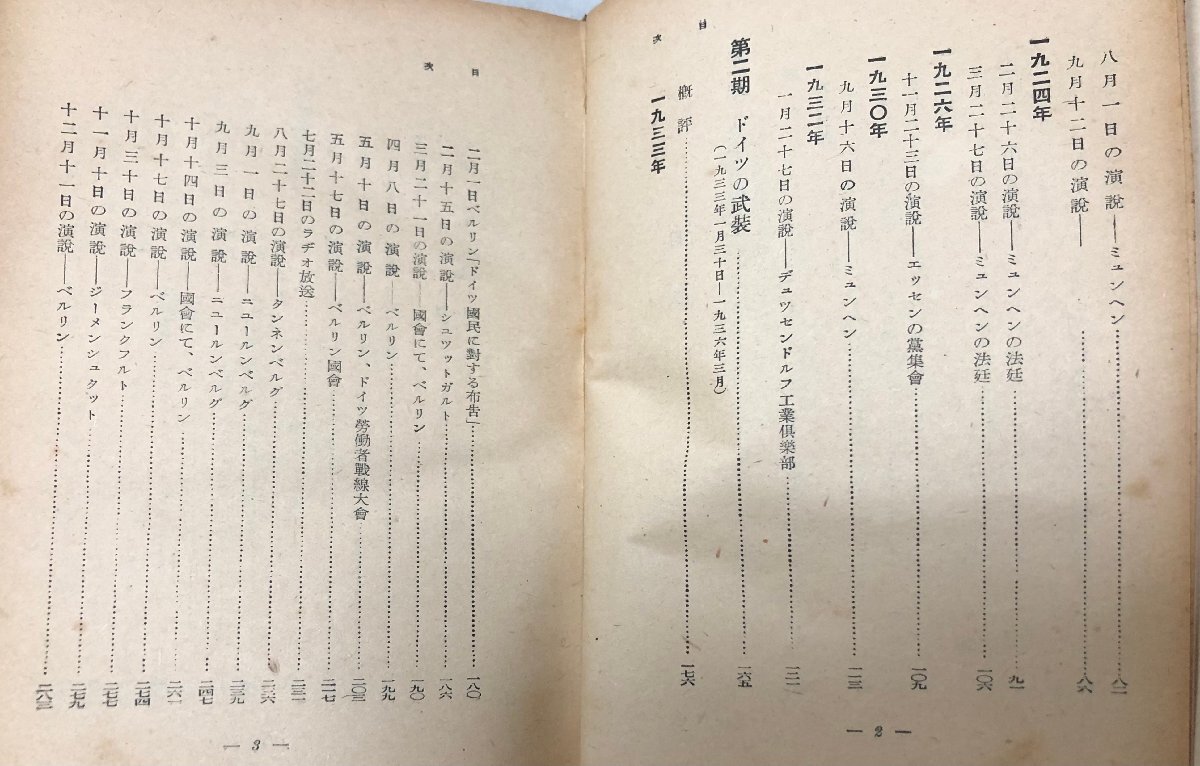 目次
八月一日の演說――ミュンヘン……八二
九月十二日の演說――……八六
一九二四年
二月二十六日の演說――ミュンヘンの法廷……九一
三月二十七日の演說――ミュンヘンの法廷……一〇六
一九二六年
十一月二十三日の演說――エッセンの黨集會……一〇九
一九三〇年
九月十六日の演說――ミュンヘン……一二三
一九三二年
一月二十七日の演說――デュッセンドルフ工業俱樂部……一三一
第二期 ドイツの武裝……一六五
(一九三三年一月三十日―一九三六年三月)
槪評……一七六
一九三三年
― 2 ―
目次
二月一日ベルリン「ドイツ國民に對する布吿」……一八〇
二月十五日の演說――シュツットガルト……一八六
三月二十一日の演說――國會にて、ベルリン……一九〇
四月八日の演說――ベルリン……一九九
五月十日の演說――ベルリン、ドイツ勞働者戰線大會……二〇三
五月十七日の演說――ベルリン國會……二一七
七月二十二日のラヂオ放送……二三一
八月二十七日の演說――タンネンベルク……二三六
九月一日の演說――ニュールンベルグ……二三九
九月三日の演說――ニュールンベルグ……二四七
十月十四日の演說――國會にて、ベルリン……二六一
十月十七日の演說――ベルリン……二七四
十月三十日の演說――フランクフルト……二七七
十一月十日の演說――ジーメンシュタット……二七九
十二月十一日の演說――ベルリン……二八三
― 3 ―